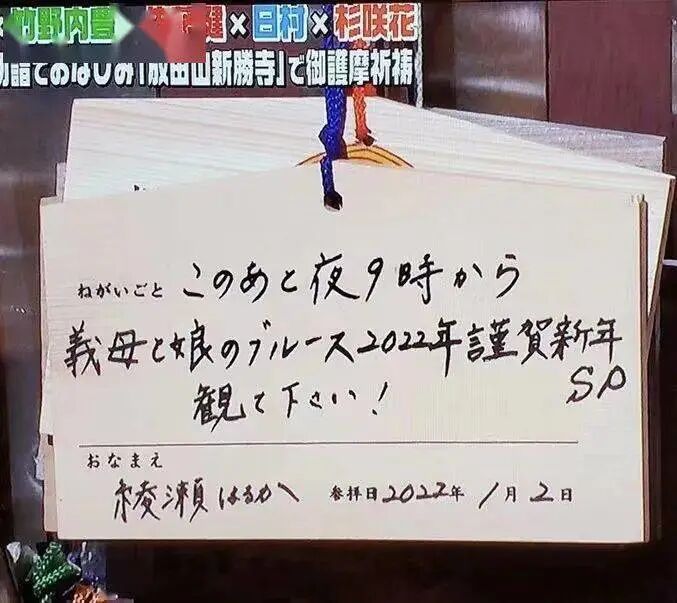 ×竹野内豊×佐藤健×日村×杉咲花
初詣でおなじみ「成田山新勝寺」で御護摩祈祷
ねがいごと このあと夜9時から
義母と娘のブルース2022年謹賀新年
SP
観て下さい!
おなまえ
綾瀬はるか 参拝日2022年1月2日